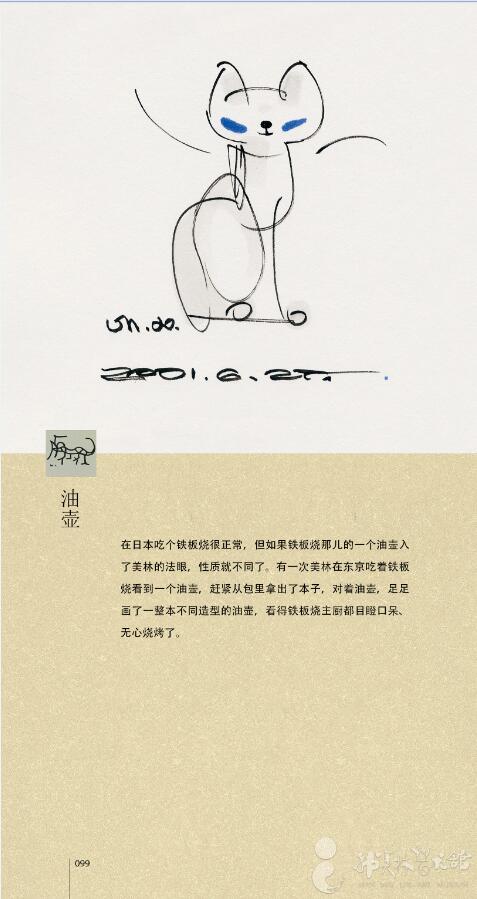 2001.6.25.
油壶
在日本吃个铁板烧很正常，但如果铁板烧那儿的一个油壶入
了美林的法眼，性质就不同了。有一次美林在东京吃着铁板
烧看到一个油壶，赶紧从包里拿出了本子，对着油壶，足足
画了一整本不同造型的油壶，看得铁板烧主厨都目瞪口呆、
无心烧烤了。
099